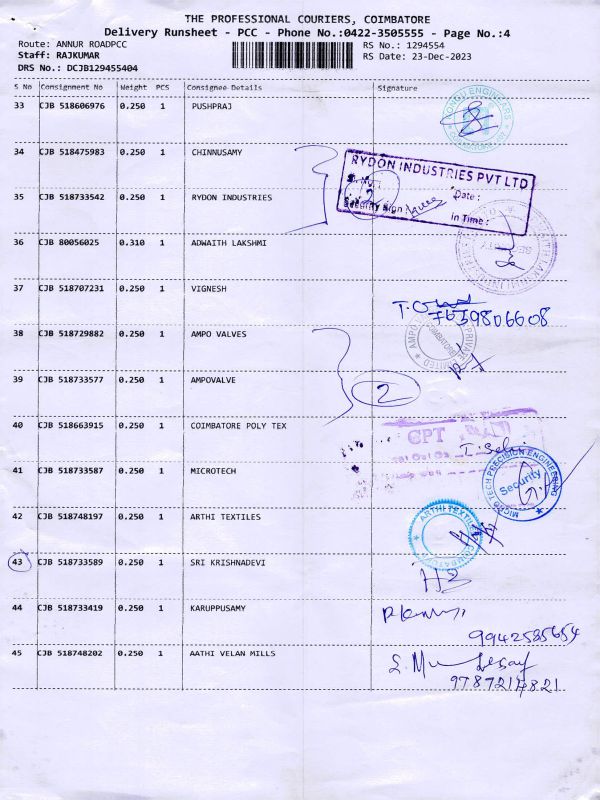 THE PROFESSIONAL COURIERS, COIMBATORE
Delivery Runsheet - PCC - Phone No.:0422-3505555 - Page No.:4
Route: ANNUR ROADPCC
RS No.: 1294554
Staff: RAJKUMAR
RS Date: 23-Dec-2023
DRS No.: DCJB129455404
S No Consignment No Weight PCS Consignee Details Signature
33 CJB 518606976 0.250 1 PUSHPRAJ
34 CJB 518475983 0.250 1 CHINNUSAMY
RYDON INDUSTRIES PVT LTD
Date :
Security Sign :
in Time :
2
35 CJB 518733542 0.250 1 RYDON INDUSTRIES
36 CJB 80056025 0.310 1 ADWAITH LAKSHMI
37 CJB 518707231 0.250 1 VIGNESH
7639806608
38 CJB 518729882 0.250 1 AMPO VALVES
39 CJB 518733577 0.250 1 AMPOVALVE
2
40 CJB 518663915 0.250 1 COIMBATORE POLY TEX
CPT
41 CJB 518733587 0.250 1 MICROTECH
MICRO TECH PRECISION ENGINEERING
Security
42 CJB 518748197 0.250 1 ARTHI TEXTILES
ARTHI TEXTILE
43 CJB 518733589 0.250 1 SRI KRISHNADEVI
44 CJB 518733419 0.250 1 KARUPPUSAMY
9942585654
45 CJB 518748202 0.250 1 AATHI VELAN MILLS
9787214821